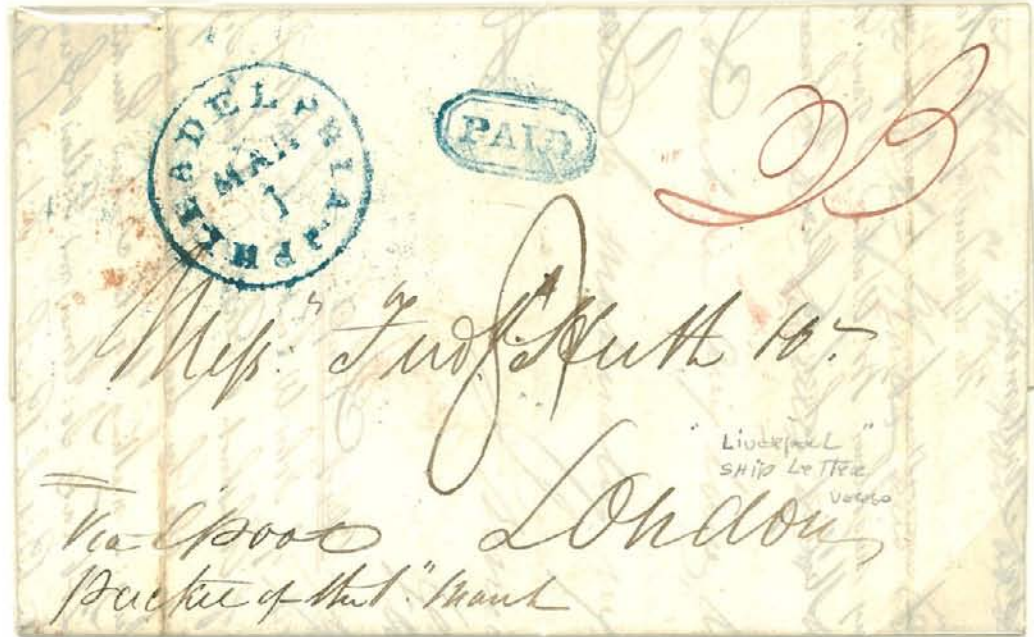 PHILADELPHIA Pa
MAR
1
PAID
8
Mess.rs Fred.k Huth &
"Liverpool"
Ship Letter
verso
London
Via L'pool
packet of the 1st March